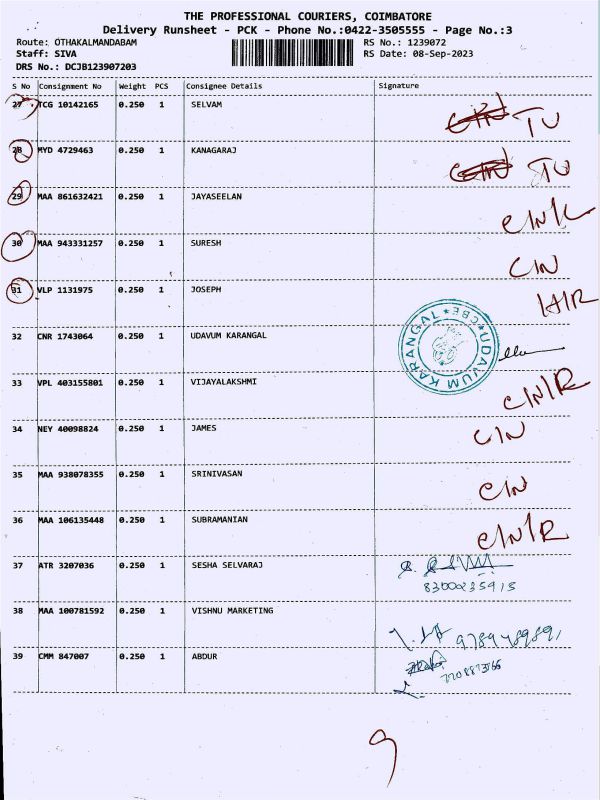 THE PROFESSIONAL COURIERS, COIMBATORE
Delivery Runsheet - PCK - Phone No.:0422-3505555 - Page No.:3
Route: OTHAKALMANDABAM RS No.: 1239072
Staff: SIVA RS Date: 08-Sep-2023
DRS No.: DCJB123907203
S No Consignment No Weight PCS Consignee Details Signature
27 TCG 10142165 0.250 1 SELVAM TU
28 MYD 4729463 0.250 1 KANAGARAJ TU
29 MAA 861632421 0.250 1 JAYASEELAN C/N/L
30 MAA 943331257 0.250 1 SURESH C/N
31 VLP 1131975 0.250 1 JOSEPH
32 CNR 1743064 0.250 1 UDAVUM KARANGAL
UDAVUM KARANGAL ★ CBE ★
33 VPL 403155801 0.250 1 VIJAYALAKSHMI C/N/R
34 NEY 40098824 0.250 1 JAMES C/N
35 MAA 938078355 0.250 1 SRINIVASAN C/N
36 MAA 106135448 0.250 1 SUBRAMANIAN C/N/R
37 ATR 3207036 0.250 1 SESHA SELVARAJ
8300235915
38 MAA 100781592 0.250 1 VISHNU MARKETING
9789489891
39 CMM 847007 0.250 1 ABDUR
9